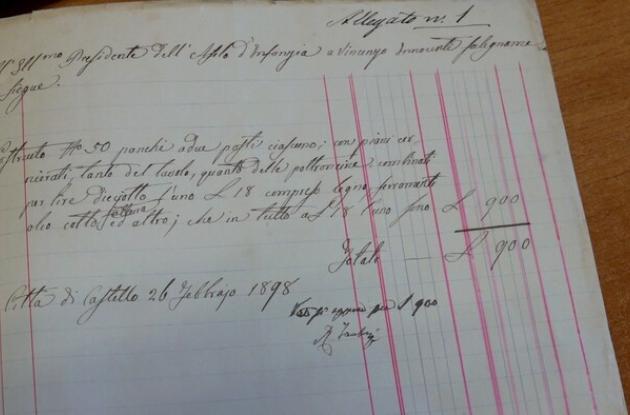 Allegato n. 1
Ill.mo Presidente dell'Asilo d'Infanzia a Vincenzo Innocente falegname
segue.
Costruito No. 50 panchi a due posti ciascuno; con piani
nierati, tanto del tavolo, quanto delle poltroncine combinati
per lire dieciotto l'uno £ 18 compreso legno ferramenti
olio cotto ed altro; che in tutto a £ 18 l'uno sono £ 900
Totale — £ 900
Citta di Castello 26 Febbrajo 1898
per £ 900